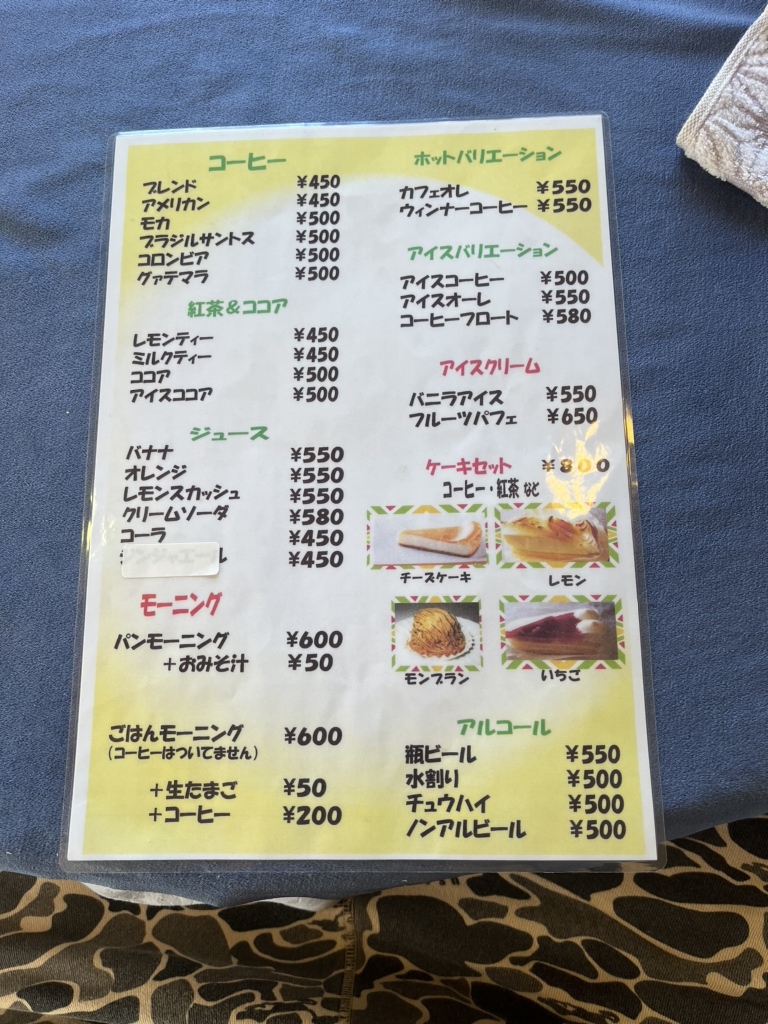 コーヒー
ブレンド ¥450
アメリカン ¥450
モカ ¥500
ブラジルサントス ¥500
コロンビア ¥500
グァテマラ ¥500
紅茶&ココア
レモンティー ¥450
ミルクティー ¥450
ココア ¥500
アイスココア ¥500
ジュース
バナナ ¥550
オレンジ ¥550
レモンスカッシュ ¥550
クリームソーダ ¥580
コーラ ¥450
ジンジャエール ¥450
モーニング
パンモーニング ¥600
+おみそ汁 ¥50
ごはんモーニング ¥600
(コーヒーはついてません)
+生たまご ¥50
+コーヒー ¥200
ホットバリエーション
カフェオレ ¥550
ウィンナーコーヒー ¥550
アイスバリエーション
アイスコーヒー ¥500
アイスオーレ ¥550
コーヒーフロート ¥580
アイスクリーム
バニラアイス ¥550
フルーツパフェ ¥650
ケーキセット ¥800
コーヒー・紅茶など
チーズケーキ レモン
モンブラン いちご
アルコール
瓶ビール ¥550
水割り ¥500
チュウハイ ¥500
ノンアルビール ¥500